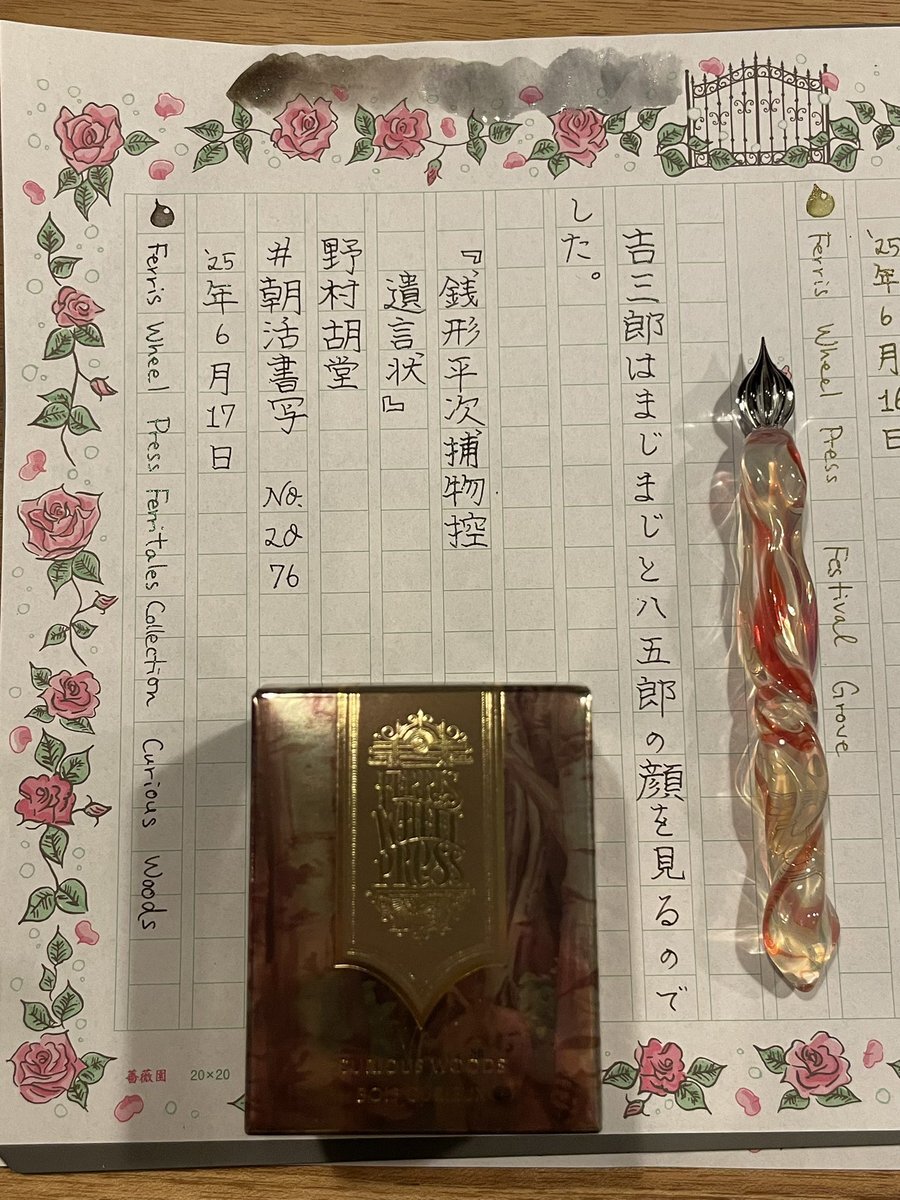 '25年6月16日
Ferris Wheel Press Festival Grove
吉三郎はまじまじと八五郎の顔を見るので
した。
『銭形平次捕物控
遺言状』
野村胡堂
#朝活書写 No. 2076
'25年6月17日
Ferris Wheel Press Ferritales Collection Curious Woods
FERRIS
WHEEL
PRESS
CURIOUS WOODS
薔薇園 20×20